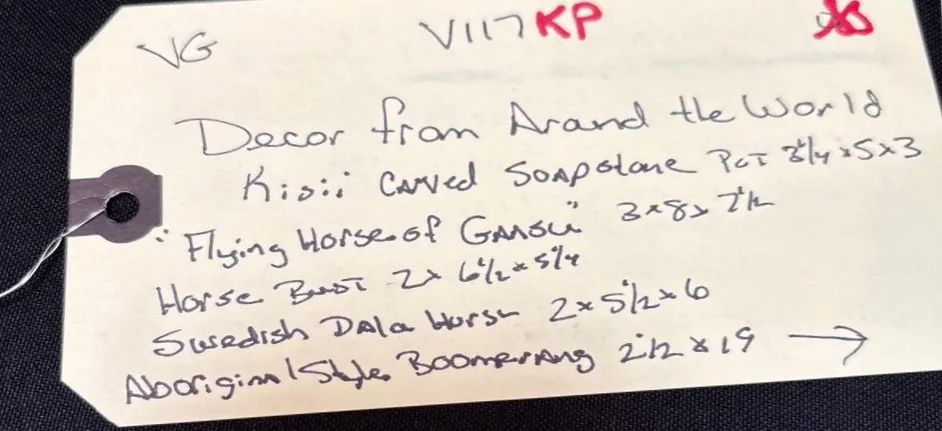 VG V117 KP
Decor from Around the World
Kisii Carved Soapstone Pot 3 1/4 x 5 x 3
"Flying Horse of Gansu" 3 x 8 x 7 1/2
Horse Bust 2 x 6 1/2 x 5 1/4
Swedish Dala Horse 2 x 5 1/2 x 6
Aboriginal Style Boomerang 2 1/2 x 19 →